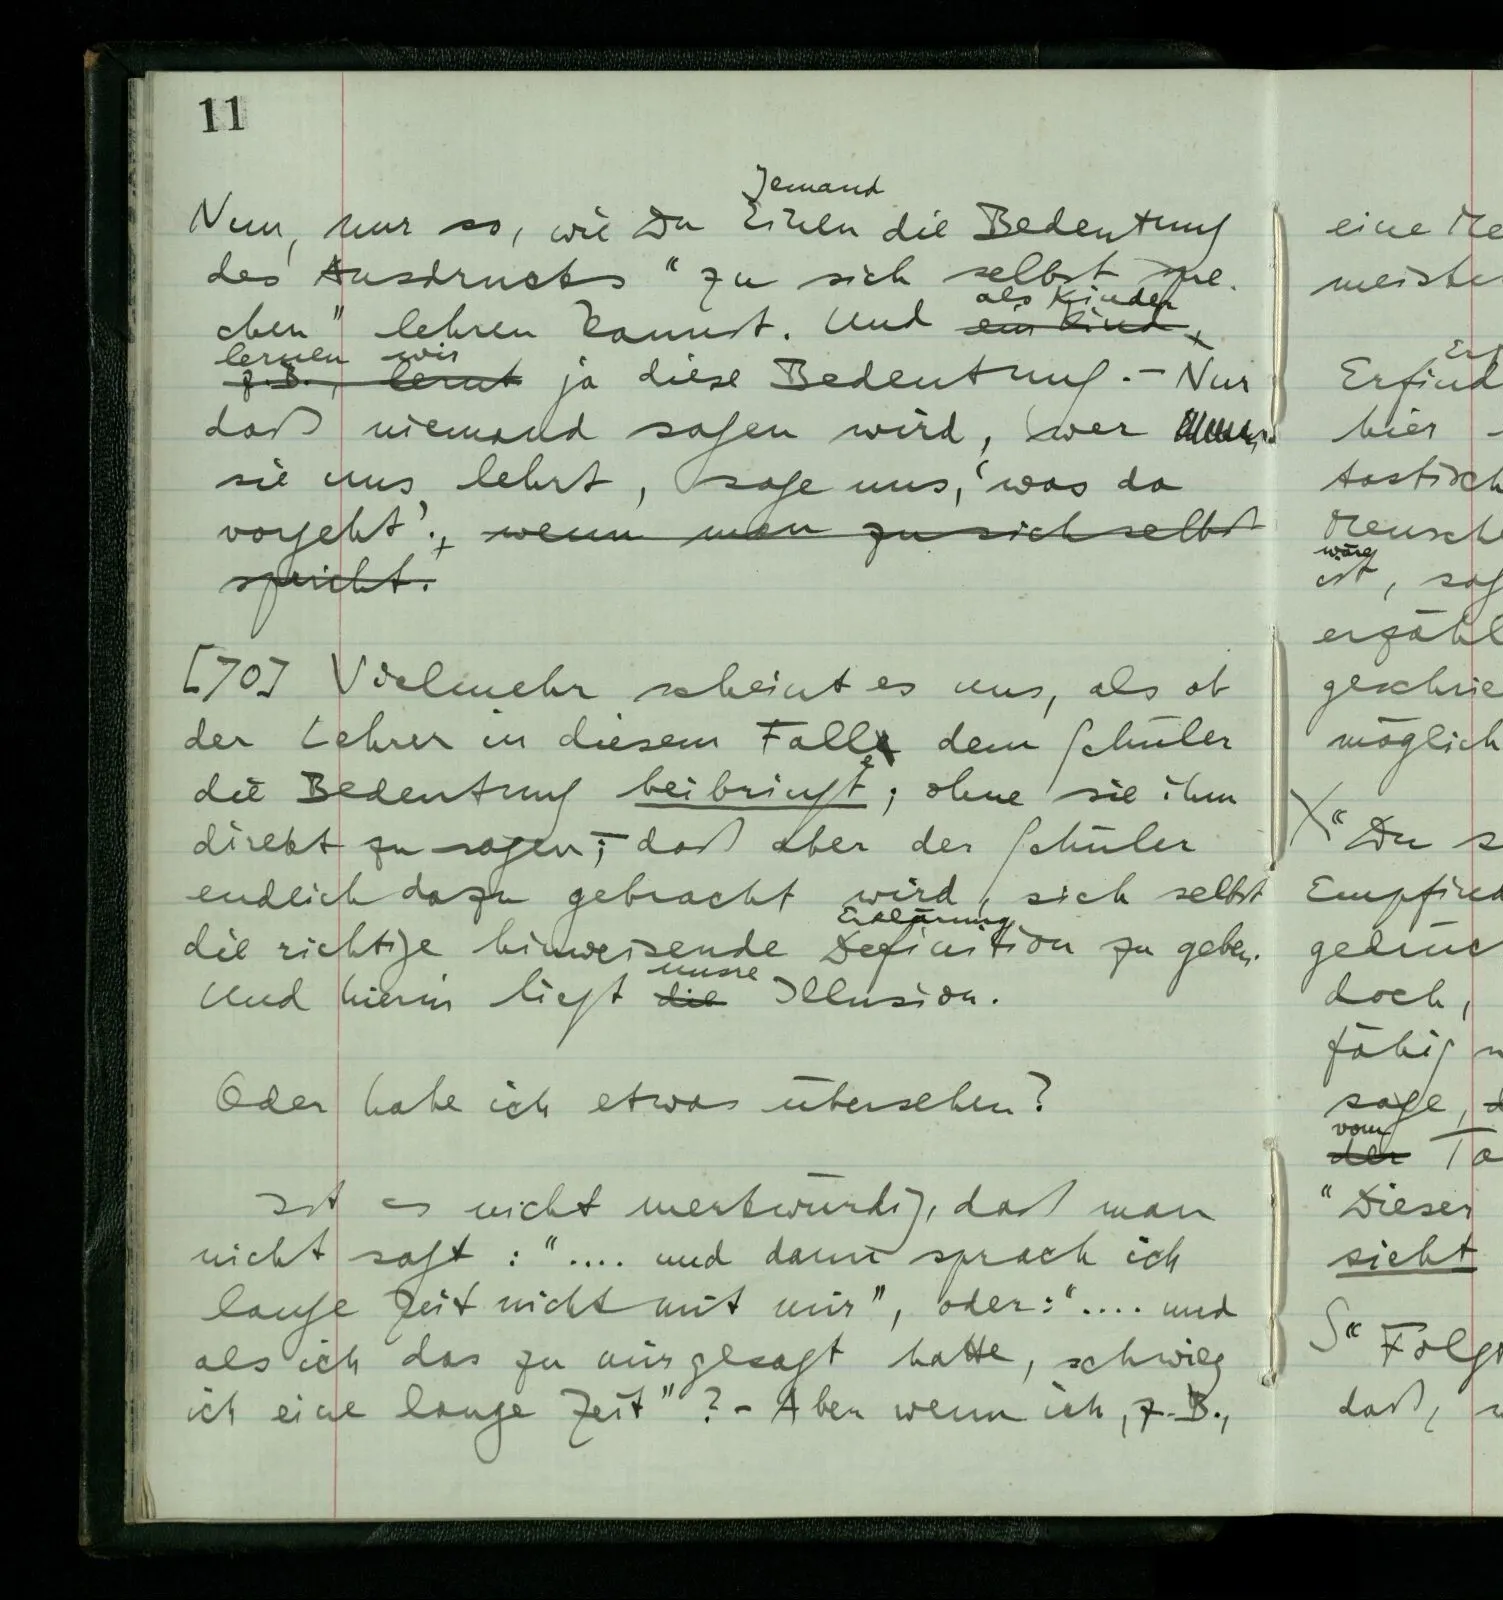 11
Jemand
Nun, nur so, wie Du Einen die Bedeutung
des Ausdrucks “zu sich selbst spre-
als Kinder
chen” lehren kannst. Und ein Kind,
lernen wir
z.B., lernt ja diese Bedeutung. – Nur
daß niemand sagen wird, wer
sie uns lehrt, sage uns, ‘was da
vorgeht’, wenn man zu sich selbst
spricht.
[70] Vielmehr scheint es uns, als ob
der Lehrer in diesem Falle dem Schüler
die Bedeutung beibringe; ohne sie ihm
direkt zu sagen; daß aber der Schüler
endlich dazu gebracht wird, sich selbst
Erklärung
die richtige hinweisende Definition zu geben.
unsre
Und hierin liegt die Illusion.
Oder habe ich etwas übersehen?
Ist es nicht merkwürdig, daß man
nicht sagt: “.... und dann sprach ich
lange Zeit nicht mit mir”, oder: “.... und
als ich das zu mir gesagt hatte, schwieg
ich eine lange Zeit”? – Aber wenn ich, z.B.,
eine Me
meister
Erfind
hier –
tastisch
Mensch
wäre
ist, sag
erzähl
geschrie
möglich
“Du s
Empfind
gedrüc
doch,
fähig
sage, d
vom
der Ta
“Dieser
sieht
S “Folgt
daß,